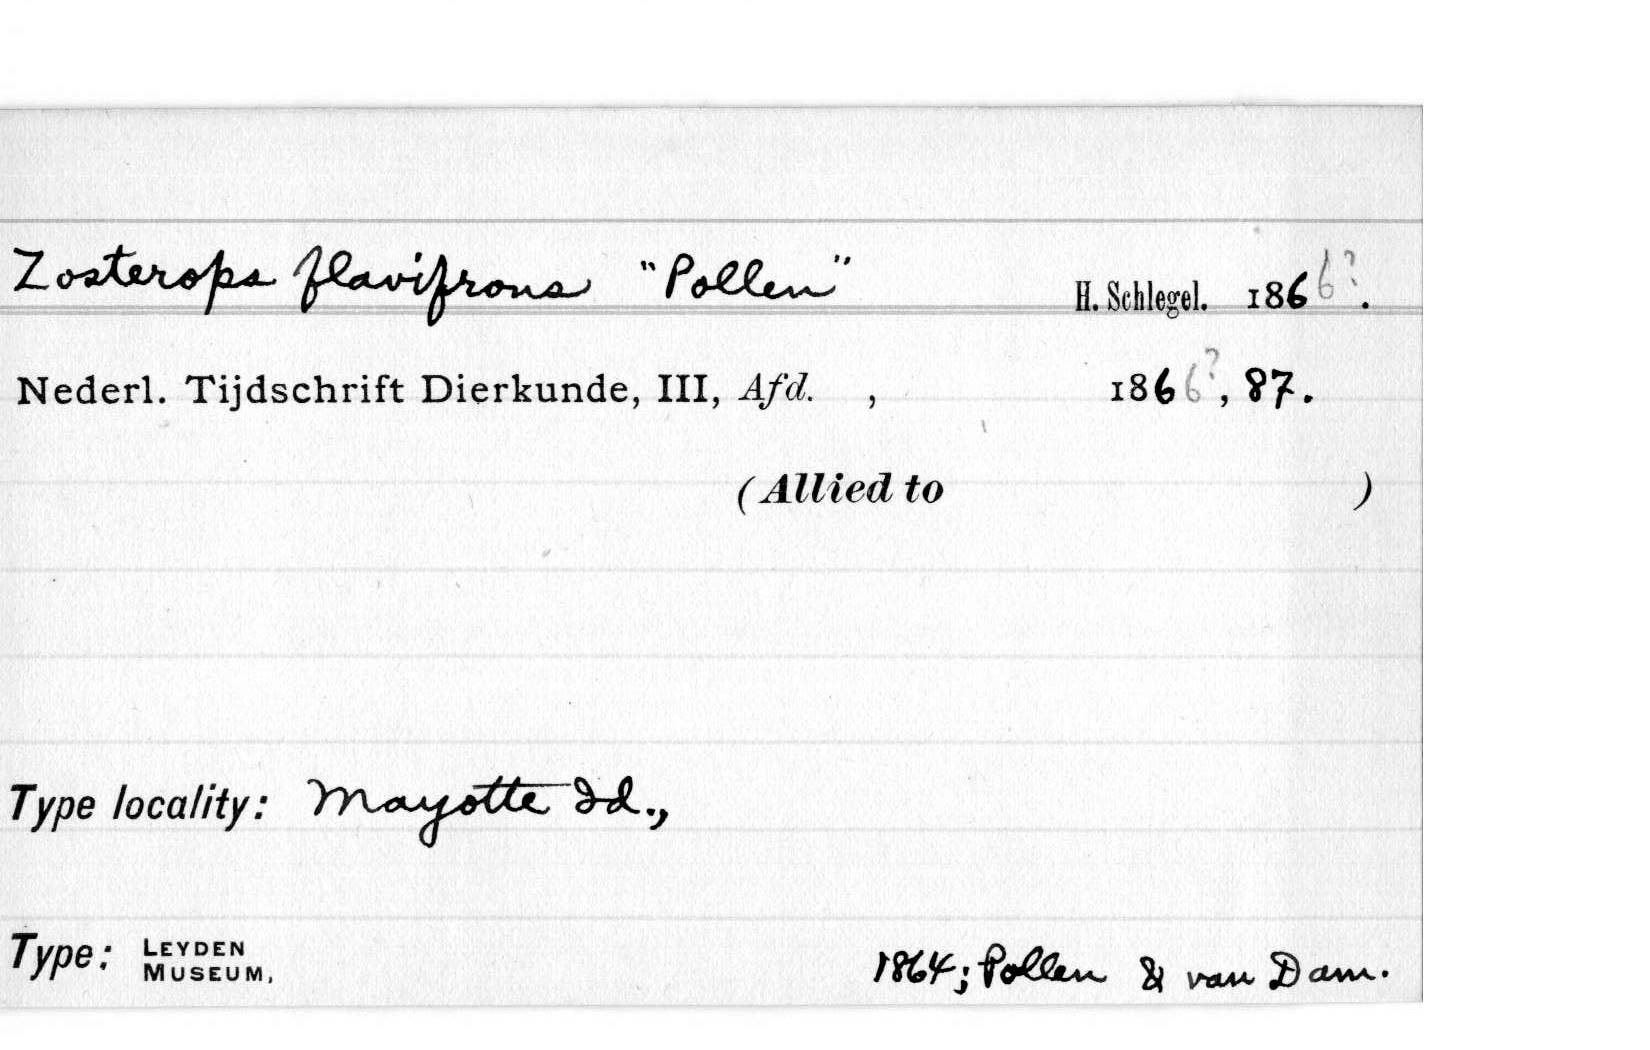 Zosterops flavifrons "Pollen" H. Schlegel. 1866?.
Nederl. Tijdschrift Dierkunde, III, Afd. , 1866?, 87.
(Allied to )
Type locality: Mayotte Id.,
Type: LEYDEN MUSEUM, 1864; Pollen & van Dam.